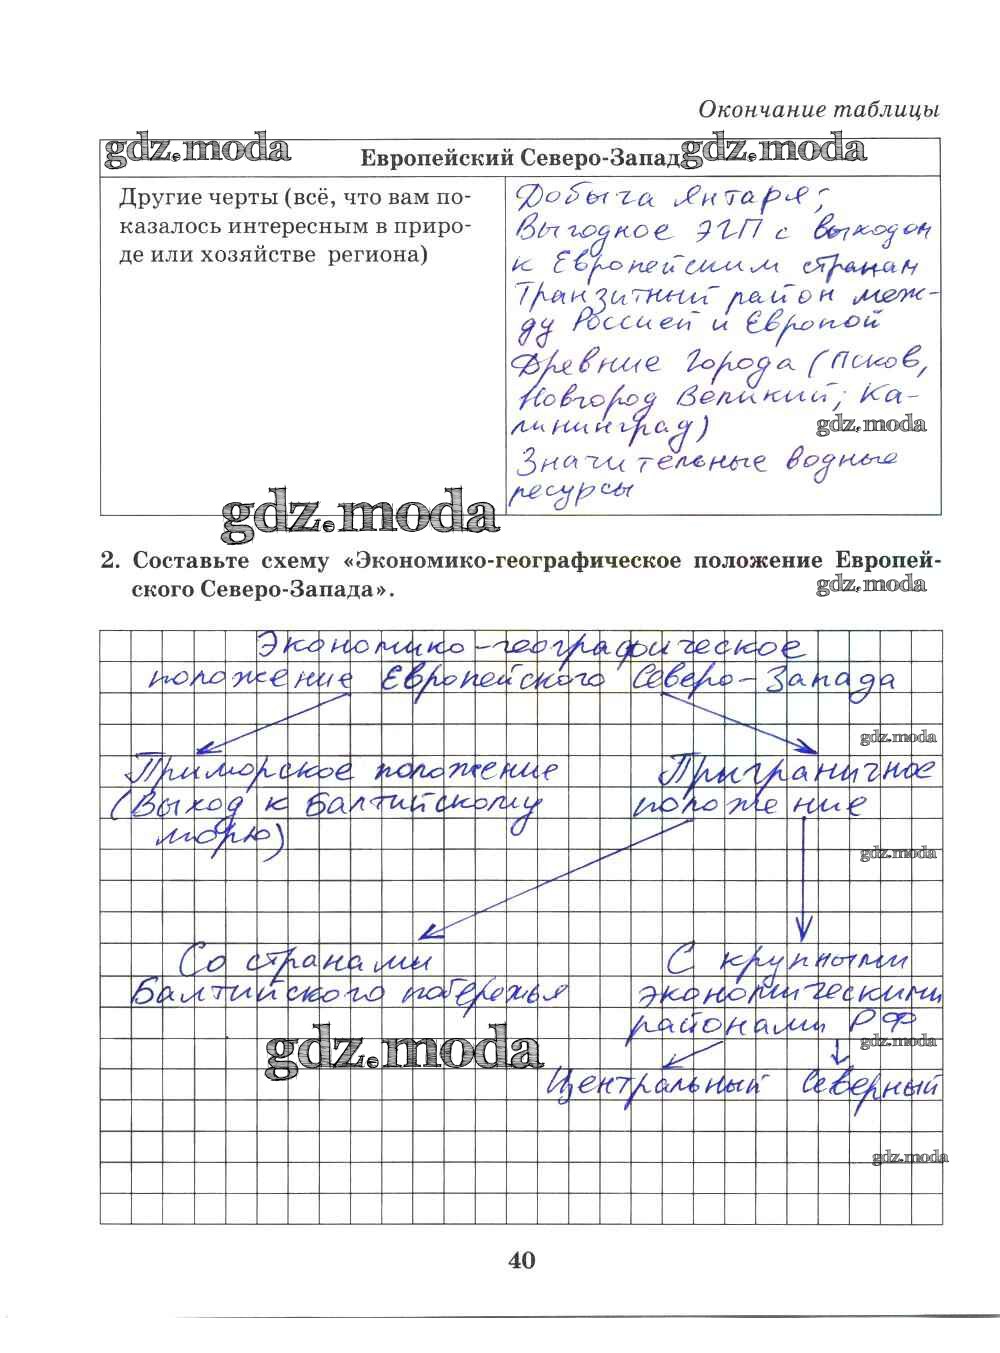 Окончание таблицы
gdz.moda
Европейский Северо-Запад
gdz.moda
Другие черты (всё, что вам по-
казалось интересным в приро-
де или хозяйстве региона)
Добыча янтаря;
Выгодное ЭГП с выходом
к Европейским странам
Транзитный район меж-
ду Россией и Европой
Древние города (Псков,
Новгород Великий, Ка-
лининград)
gdz.moda
Значительные водные
ресурсы
gdz.moda
2. Составьте схему «Экономико-географическое положение Европей-
ского Северо-Запада».
gdz.moda
Экономико-географическое
положение Европейского Северо-Запада
gdz.moda
Приморское положение
(Выход к Балтийскому
морю)
Приграничное
положение
gdz.moda
Со странами
Балтийского побережья
С крупными
экономическими
районами РФ
gdz.moda
gdz.moda
Центральный Северный
gdz.moda
40